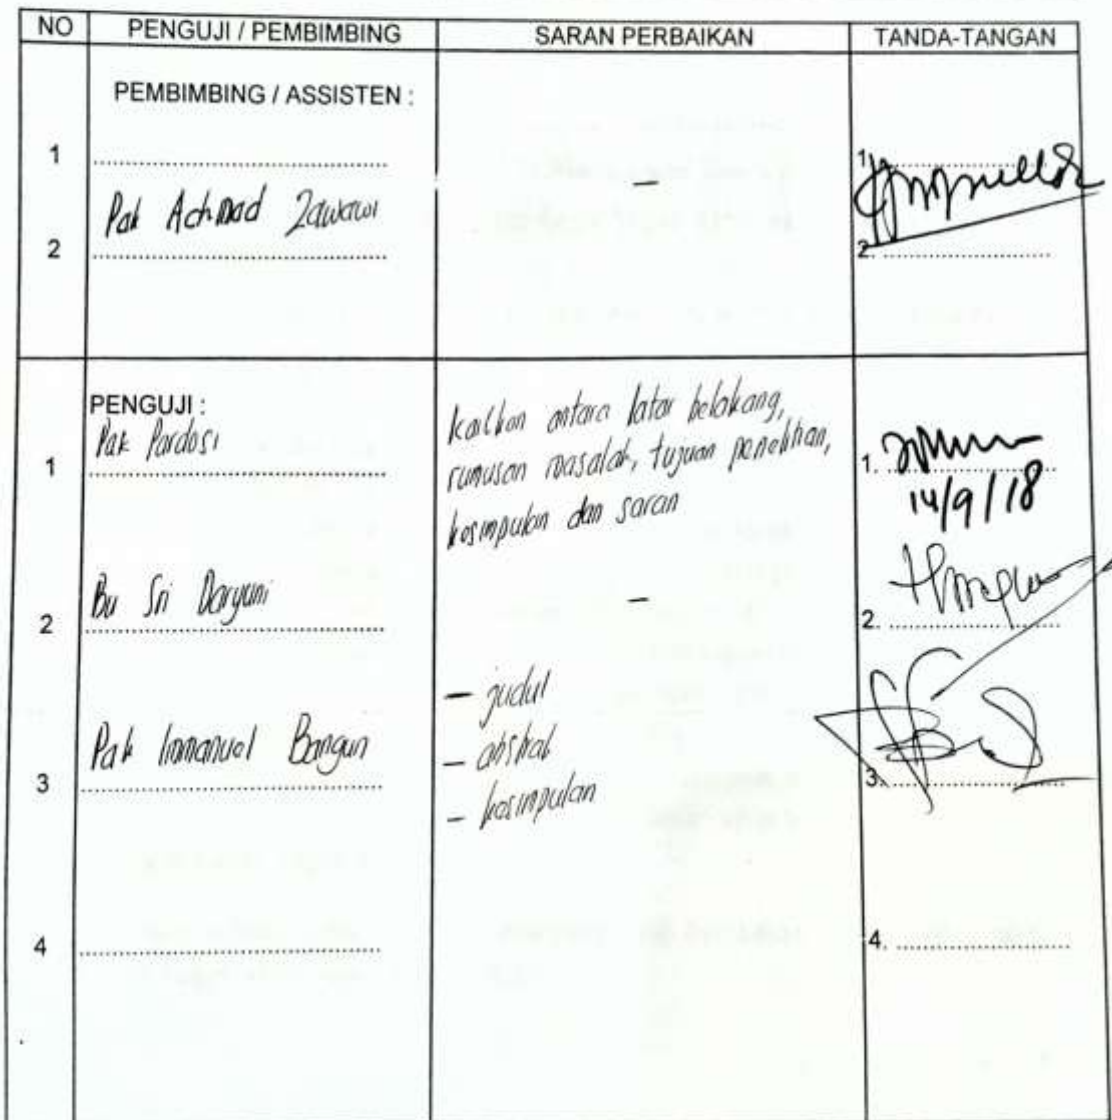 NO PENGUJI / PEMBIMBING SARAN PERBAIKAN TANDA-TANGAN
PEMBIMBING / ASSISTEN :
1 1.
Pak Achmad Zawawi –
2 2.
PENGUJI :
Pak Pardosi
1 1.
kaitkan antara latar belakang,
rumusan masalah, tujuan penelitian,
kesimpulan dan saran
14/9/18
Bu Sri Daryuni –
2 2.
– judul
Pak Immanuel Bangun – abstrak
3 3.
– kesimpulan
4 4.